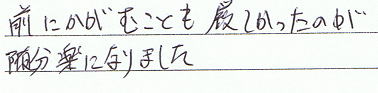 前にかがむことも厳しかったのが
随分楽になりました